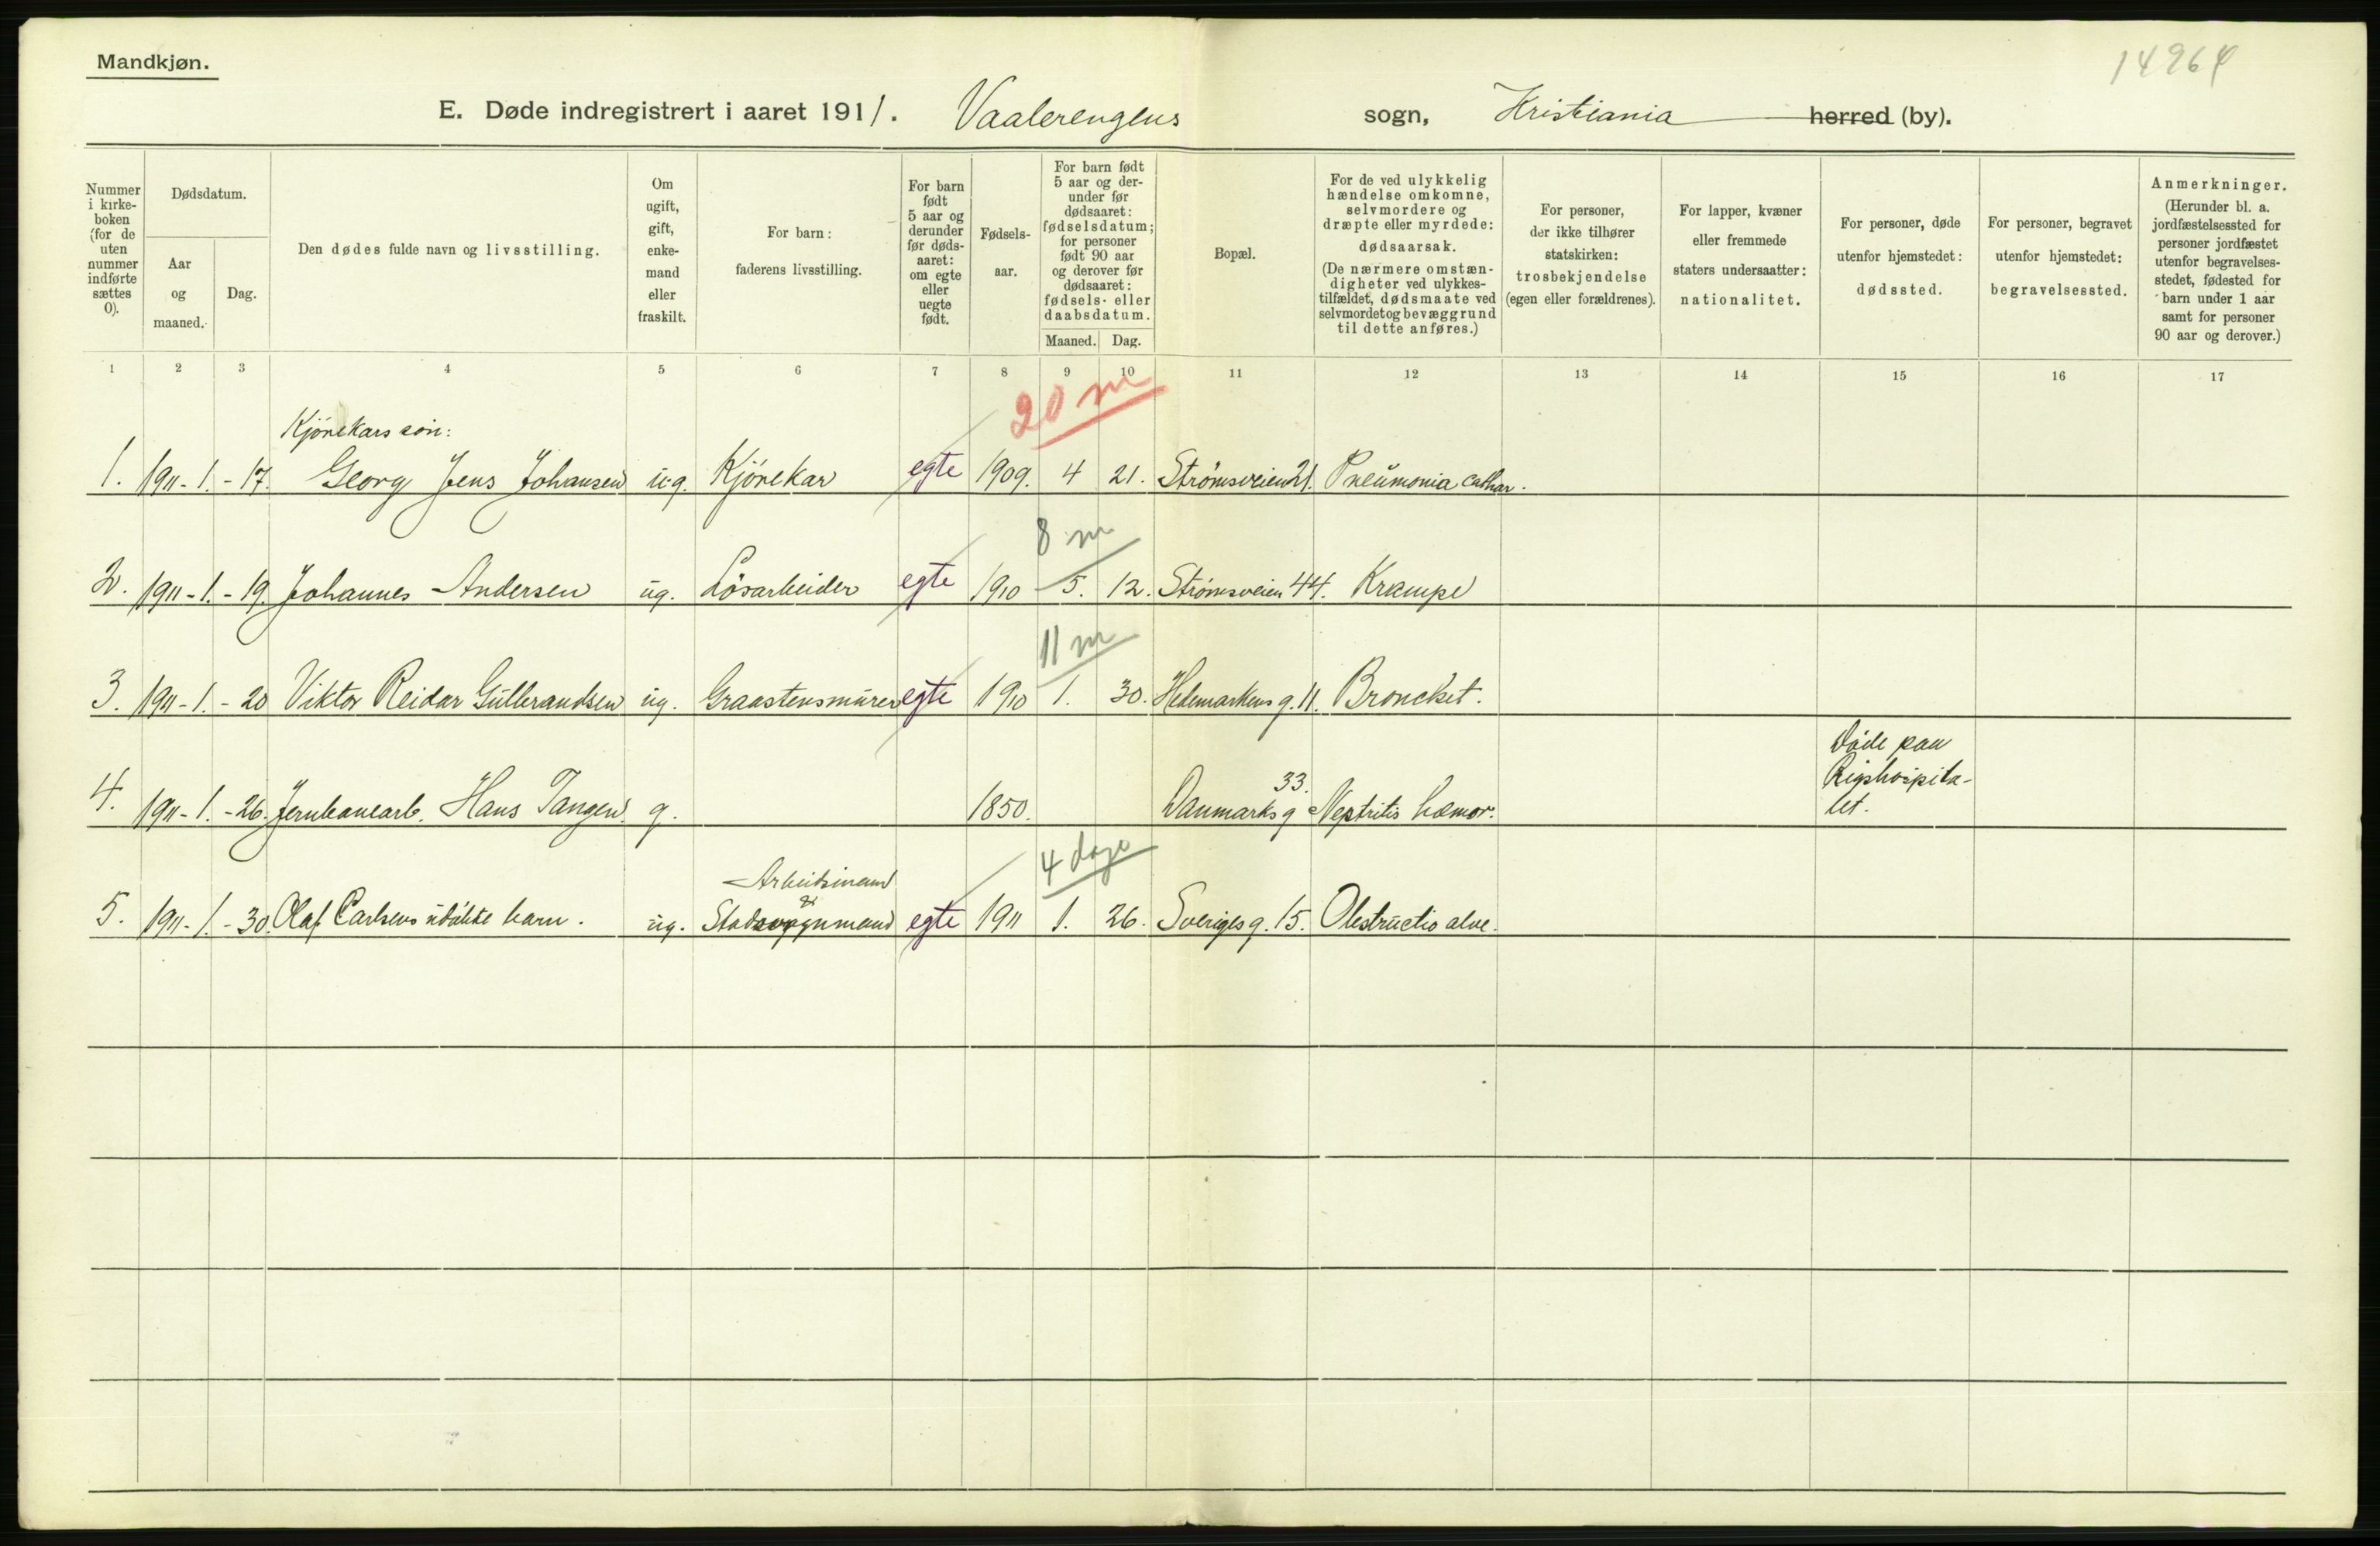 Mandkjøn.
14964
E. Døde indregistrert i aaret 1911. Vaalerengens sogn, Kristiania herred (by).
Nummer i kirke-boken (for de uten nummer indførte sættes 0).
Dødsdatum.
Aar og maaned.
Dag.
Den dødes fulde navn og livsstilling.
Om ugift, gift, enke-mand eller fraskilt.
For barn: faderens livsstilling.
For barn født 5 aar og derunder før døds-aaret: om egte eller uegte født.
Fødsels-aar.
For barn født 5 aar og der-under før dødsaaret: fødselsdatum; for personer født 90 aar og derover før dødsaaret: fødsels- eller daabsdatum.
Maaned. Dag.
Bopæl.
For de ved ulykkelig hændelse omkomne, selvmordere og dræpte eller myrdede: dødsaarsak. (De nærmere omstæn-digheter ved ulykkes-tilfældet, dødsmaate ved selvmordet og bevæggrund til dette anføres.)
For personer, der ikke tilhører statskirken: trosbekjendelse (egen eller forældrenes).
For lapper, kvæner eller fremmede staters undersaatter: nationalitet.
For personer, døde utenfor hjemstedet: dødssted.
For personer, begravet utenfor hjemstedet: begravelsessted.
Anmerkninger. (Herunder bl. a. jordfæstelsessted for personer jordfæstet utenfor begravelses-stedet, fødested for barn under 1 aar samt for personer 90 aar og derover.)
1 2 3 4 5 6 7 8 9 10 11 12 13 14 15 16 17
20 m
Kjørekars søn:
1. 1911-1.-17. Georg Jens Johansen ug. Kjørekar egte 1909. 4 21. Strømsveien 21. Pneumonia cathar.
8 m
2. 1911-1.-19. Johannes Andersen ug. Løsarbeider egte 1910 5. 12. Strømsveien 44. Krampe
11 m
3. 1911-1.-20 Viktor Reidar Gulbrandsen ug. Graastensmurer egte 1910 1. 30. Hedemarkens g. 11. Bronchit.
Døde paa
33. Rigshospita-
4. 1911-1.-26. Jernbanearb. Hans Tangen g. 1850. Danmarks g Nephritis hæmor. let.
4 dage
Arbeidsmand
5. 1911-1.-30. Olaf Carlsens udøbte barn. ug. egte 1911 1. 26. Sveriges g. 15. Obstructio alve.